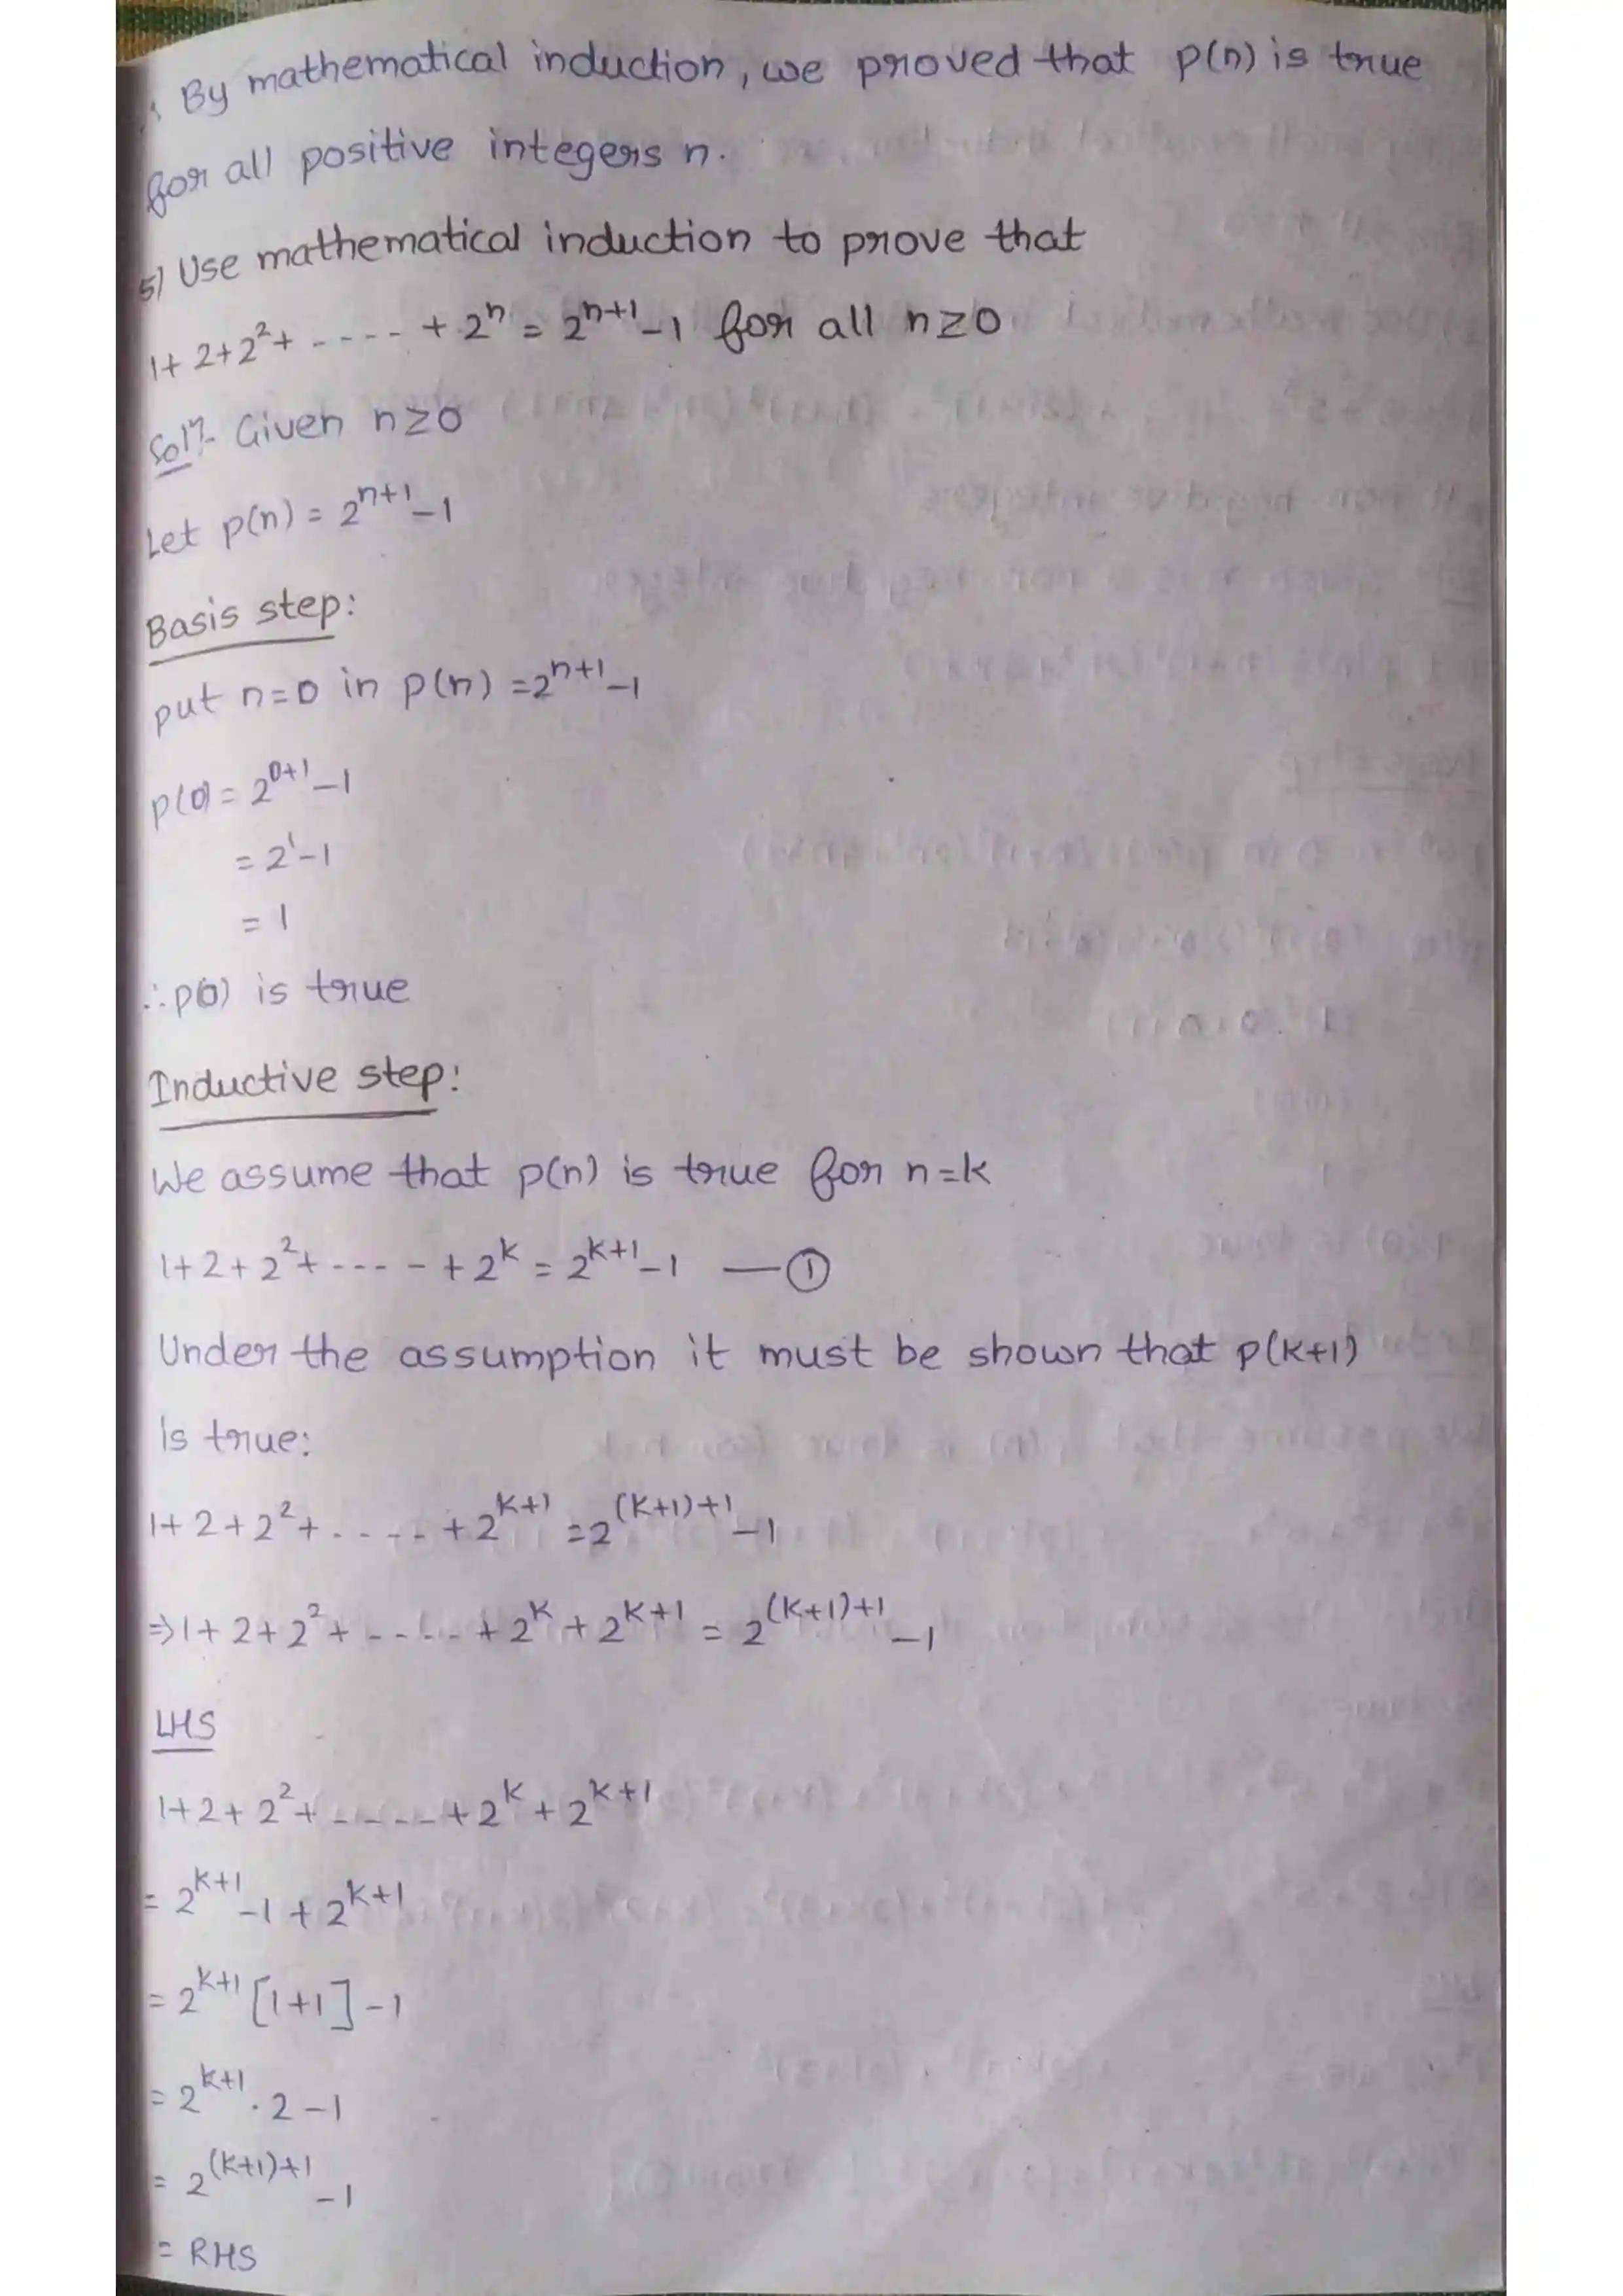 ∴ By mathematical induction, we proved that p(n) is true
for all positive integers n.
5) Use mathematical induction to prove that
1+2+2²+ ----- +2ⁿ = 2ⁿ⁺¹-1 for all n≥0
Solⁿ:- Given n≥0
Let p(n) = 2ⁿ⁺¹-1
Basis step:
put n=0 in p(n) = 2ⁿ⁺¹-1
p(0) = 2⁰⁺¹-1
= 2¹-1
= 1
∴ p(0) is true
Inductive step:
We assume that p(n) is true for n=k
1+2+2²+ ----- +2ᵏ = 2ᵏ⁺¹-1 —①
Under the assumption it must be shown that p(k+1)
is true:
1+2+2²+ ----- +2ᵏ⁺¹ = 2⁽ᵏ⁺¹⁾⁺¹-1
⇒ 1+2+2²+ ----- +2ᵏ+2ᵏ⁺¹ = 2⁽ᵏ⁺¹⁾⁺¹-1
LHS
1+2+2²+ ----- +2ᵏ+2ᵏ⁺¹
= 2ᵏ⁺¹-1+2ᵏ⁺¹
= 2ᵏ⁺¹[1+1]-1
= 2ᵏ⁺¹.2-1
= 2⁽ᵏ⁺¹⁾⁺¹-1
= RHS